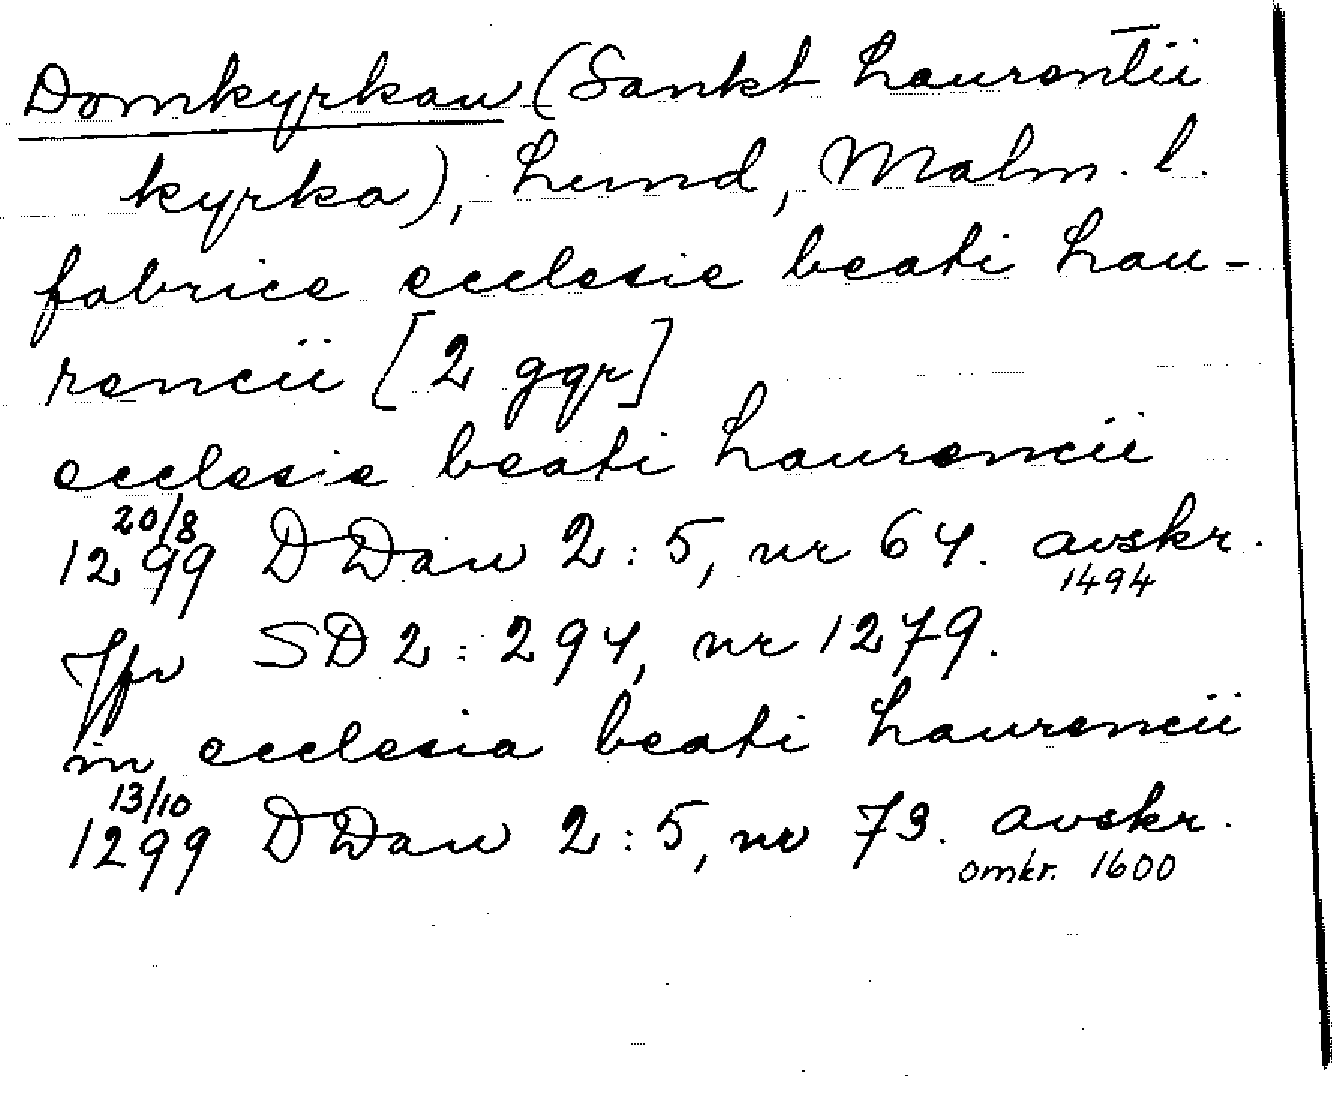 Domkyrkan (Sankt Laurentii
kyrka), Lund, Malm. l.
fabrice ecclesie beati Lau-
rencii [2 ggr]
ecclesie beati Laurencii
20/8
1299 DDan 2:5, nr 64. avskr.
1494
Jfr SD 2:294, nr 1279.
in ecclesia beati Laurencii
13/10
1299 DDan 2:5, nr 73. avskr.
omkr. 1600